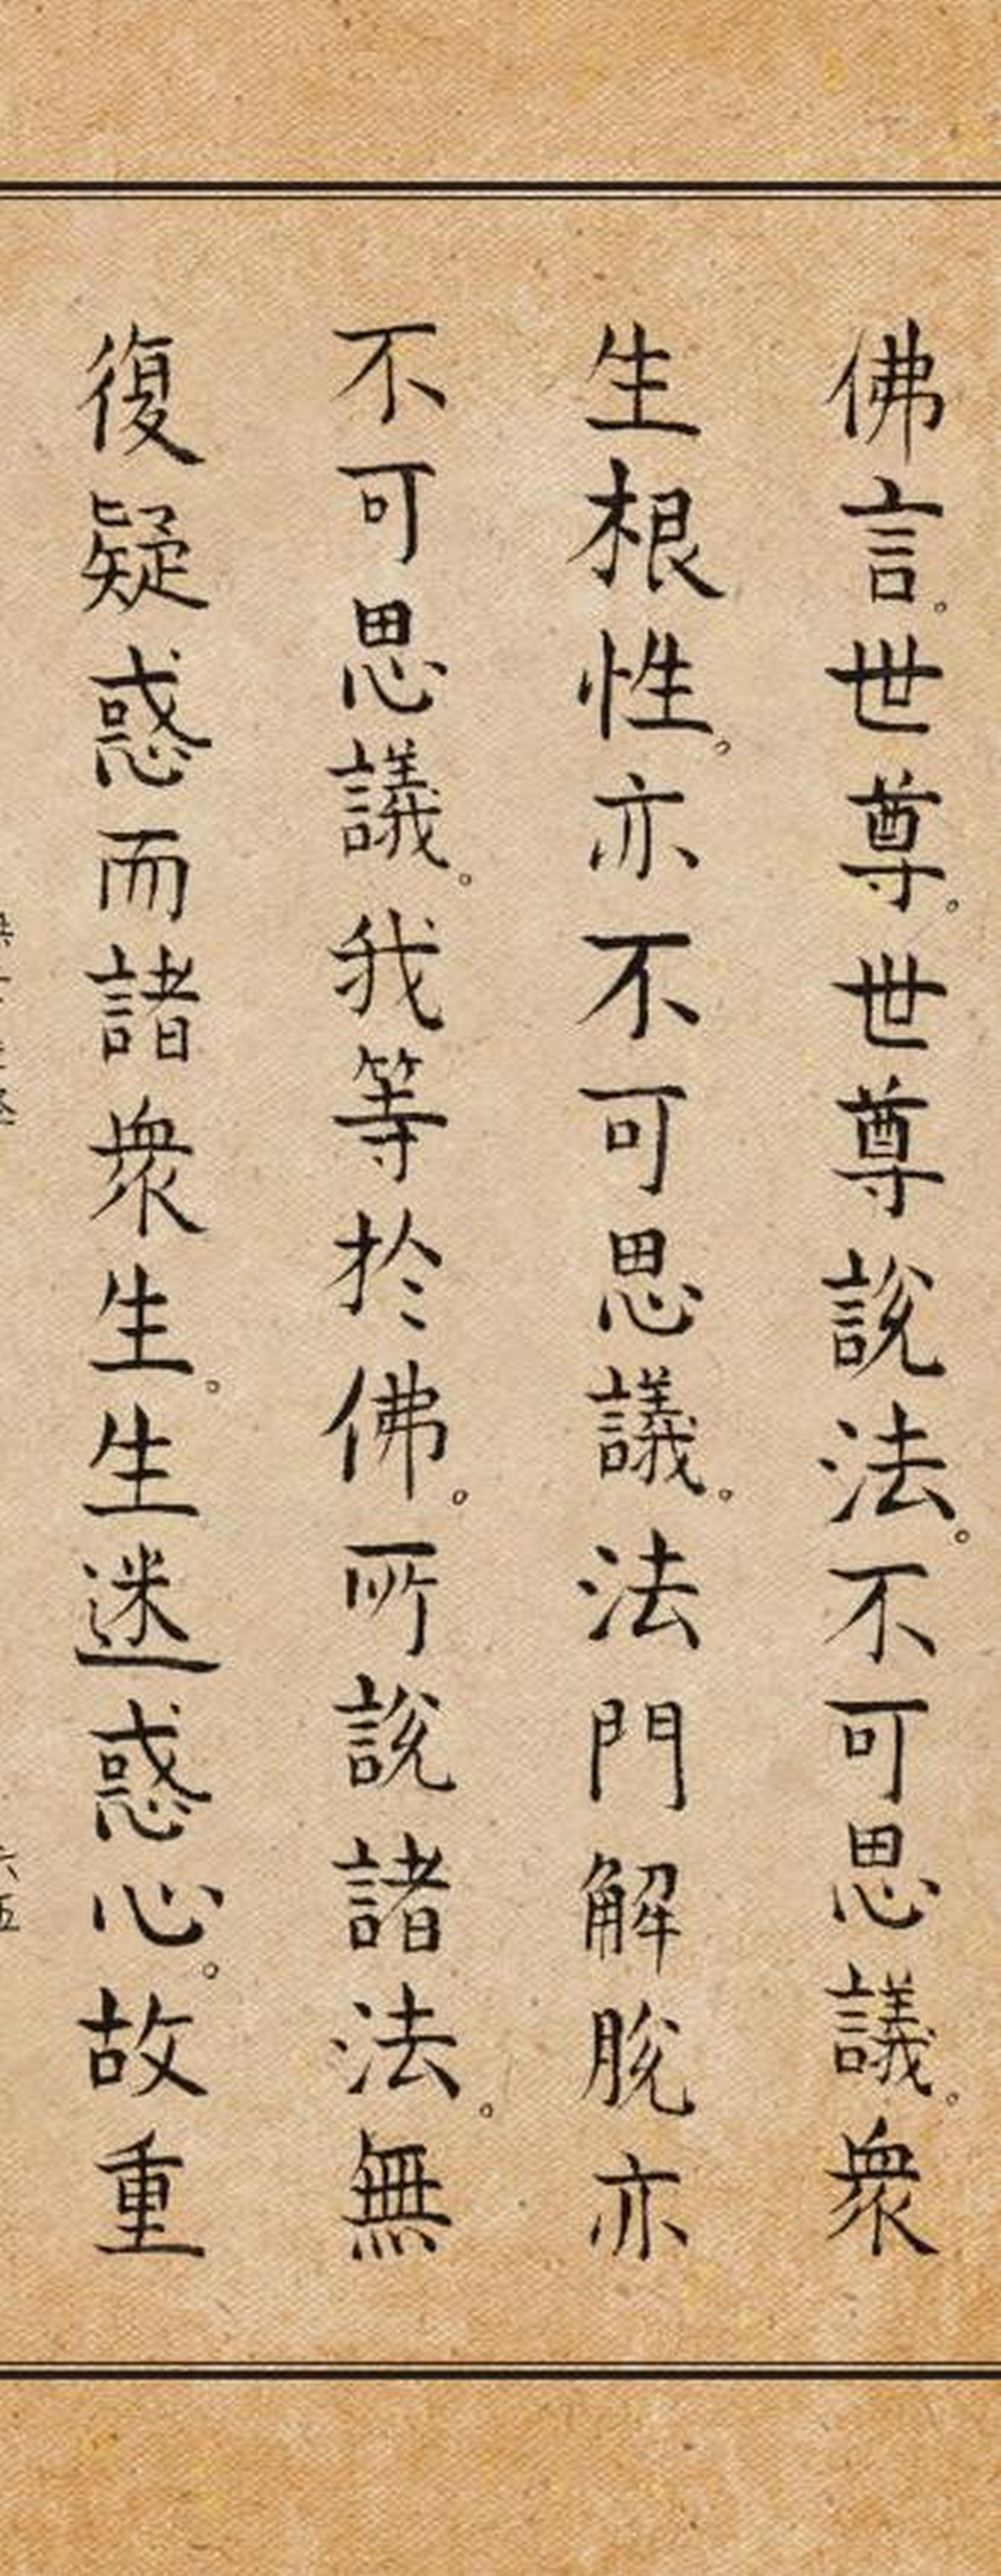 佛言。世尊。世尊說法。不可思議。衆
生根性。亦不可思議。法門解脫亦
不可思議。我等於佛。所說諸法。無
復疑惑而諸衆生。生迷惑心。故重
六五